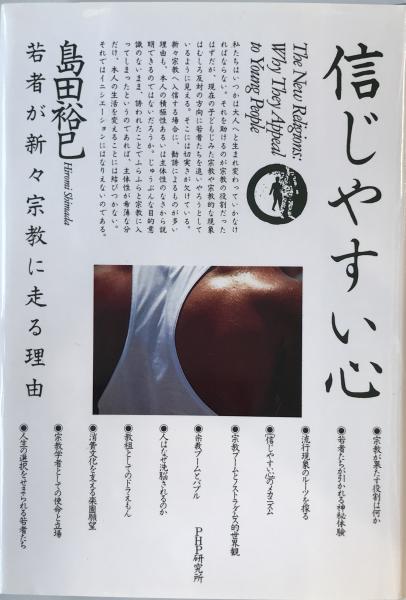 信じやすい心
若者が新々宗教に走る理由
島田裕巳
Hiromi Shimada
The New Religions:
Why They Appeal
to Young People
私たちはいつかは大人へと生まれ変わっていかなけ
ればならない。それを助けるのが宗教の役割だった
はずだが、現在の子どもじみた宗教や宗教的な現象
はむしろ反対の方向に若者たちを追いやろうとして
いるように見える。そこには切実さが欠けている。
新々宗教へ入信する場合に、勧誘によるものが多い
理由も、本人の積極性あるいは主体性のなさから説
明できるのではないだろうか。じゅうぶんな目的意
識のないまま、誘われたことでふらふらと宗教に入
ってしまったというのであれば、主体性が希薄な分
だけ、本人の生活を変えることには結びつかない。
それではイニシエーションにはなりえないのである。
●宗教が果たす役割は何か
●若者たちが引かれる神秘体験
●流行現象のルーツを探る
●「信じやすい心」のメカニズム
●宗教ブームとノストラダムス的世界観
●宗教ブームとバブル
●人はなぜ洗脳されるのか
●教祖としてのドラえもん
●消費文化を支える楽園願望
●宗教学者としての使命と立場
●人生の選択をせまられる若者たち
PHP研究所